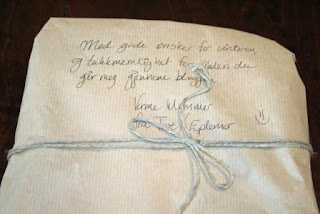 Med gode ønsker for våren,
og takknemlighet for gleden du
gir meg gjennom bloggen
Varme klemmer
fra Tove Eplemor